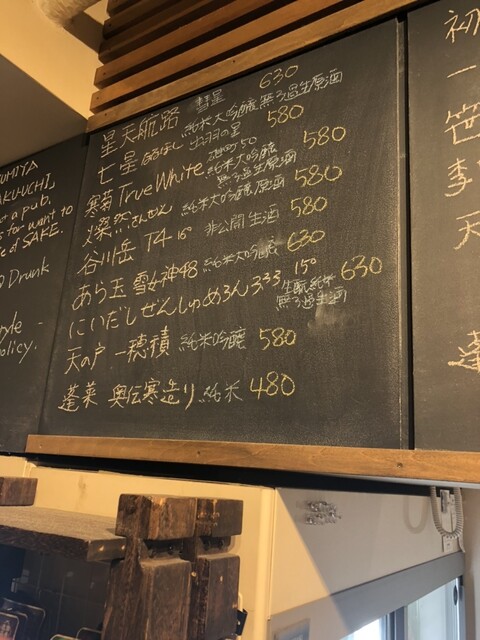 UMIYA
AKUUCHI,
ot a pub.
s for want to
e of SAKE.
Drunk
style -
policy.
星天航路 彗星 630
純米大吟醸 無ろ過生原酒
七星 出羽の里 580
寒菊 True White 50 純米大吟醸 無ろ過生原酒 580
燦然 さんぜん 純米大吟醸原酒 580
谷川岳 T4 15° 非公開生酒 580
あら玉 雪女神48 純米大吟醸 630
にいだしぜんしゅめろん3.33 15° 生酛純米 無ろ過生酒 630
天の戸 一穂積 純米吟醸 580
蓬莱 奥伝寒造り 純米 480
初
一
笹
李
天
蓬